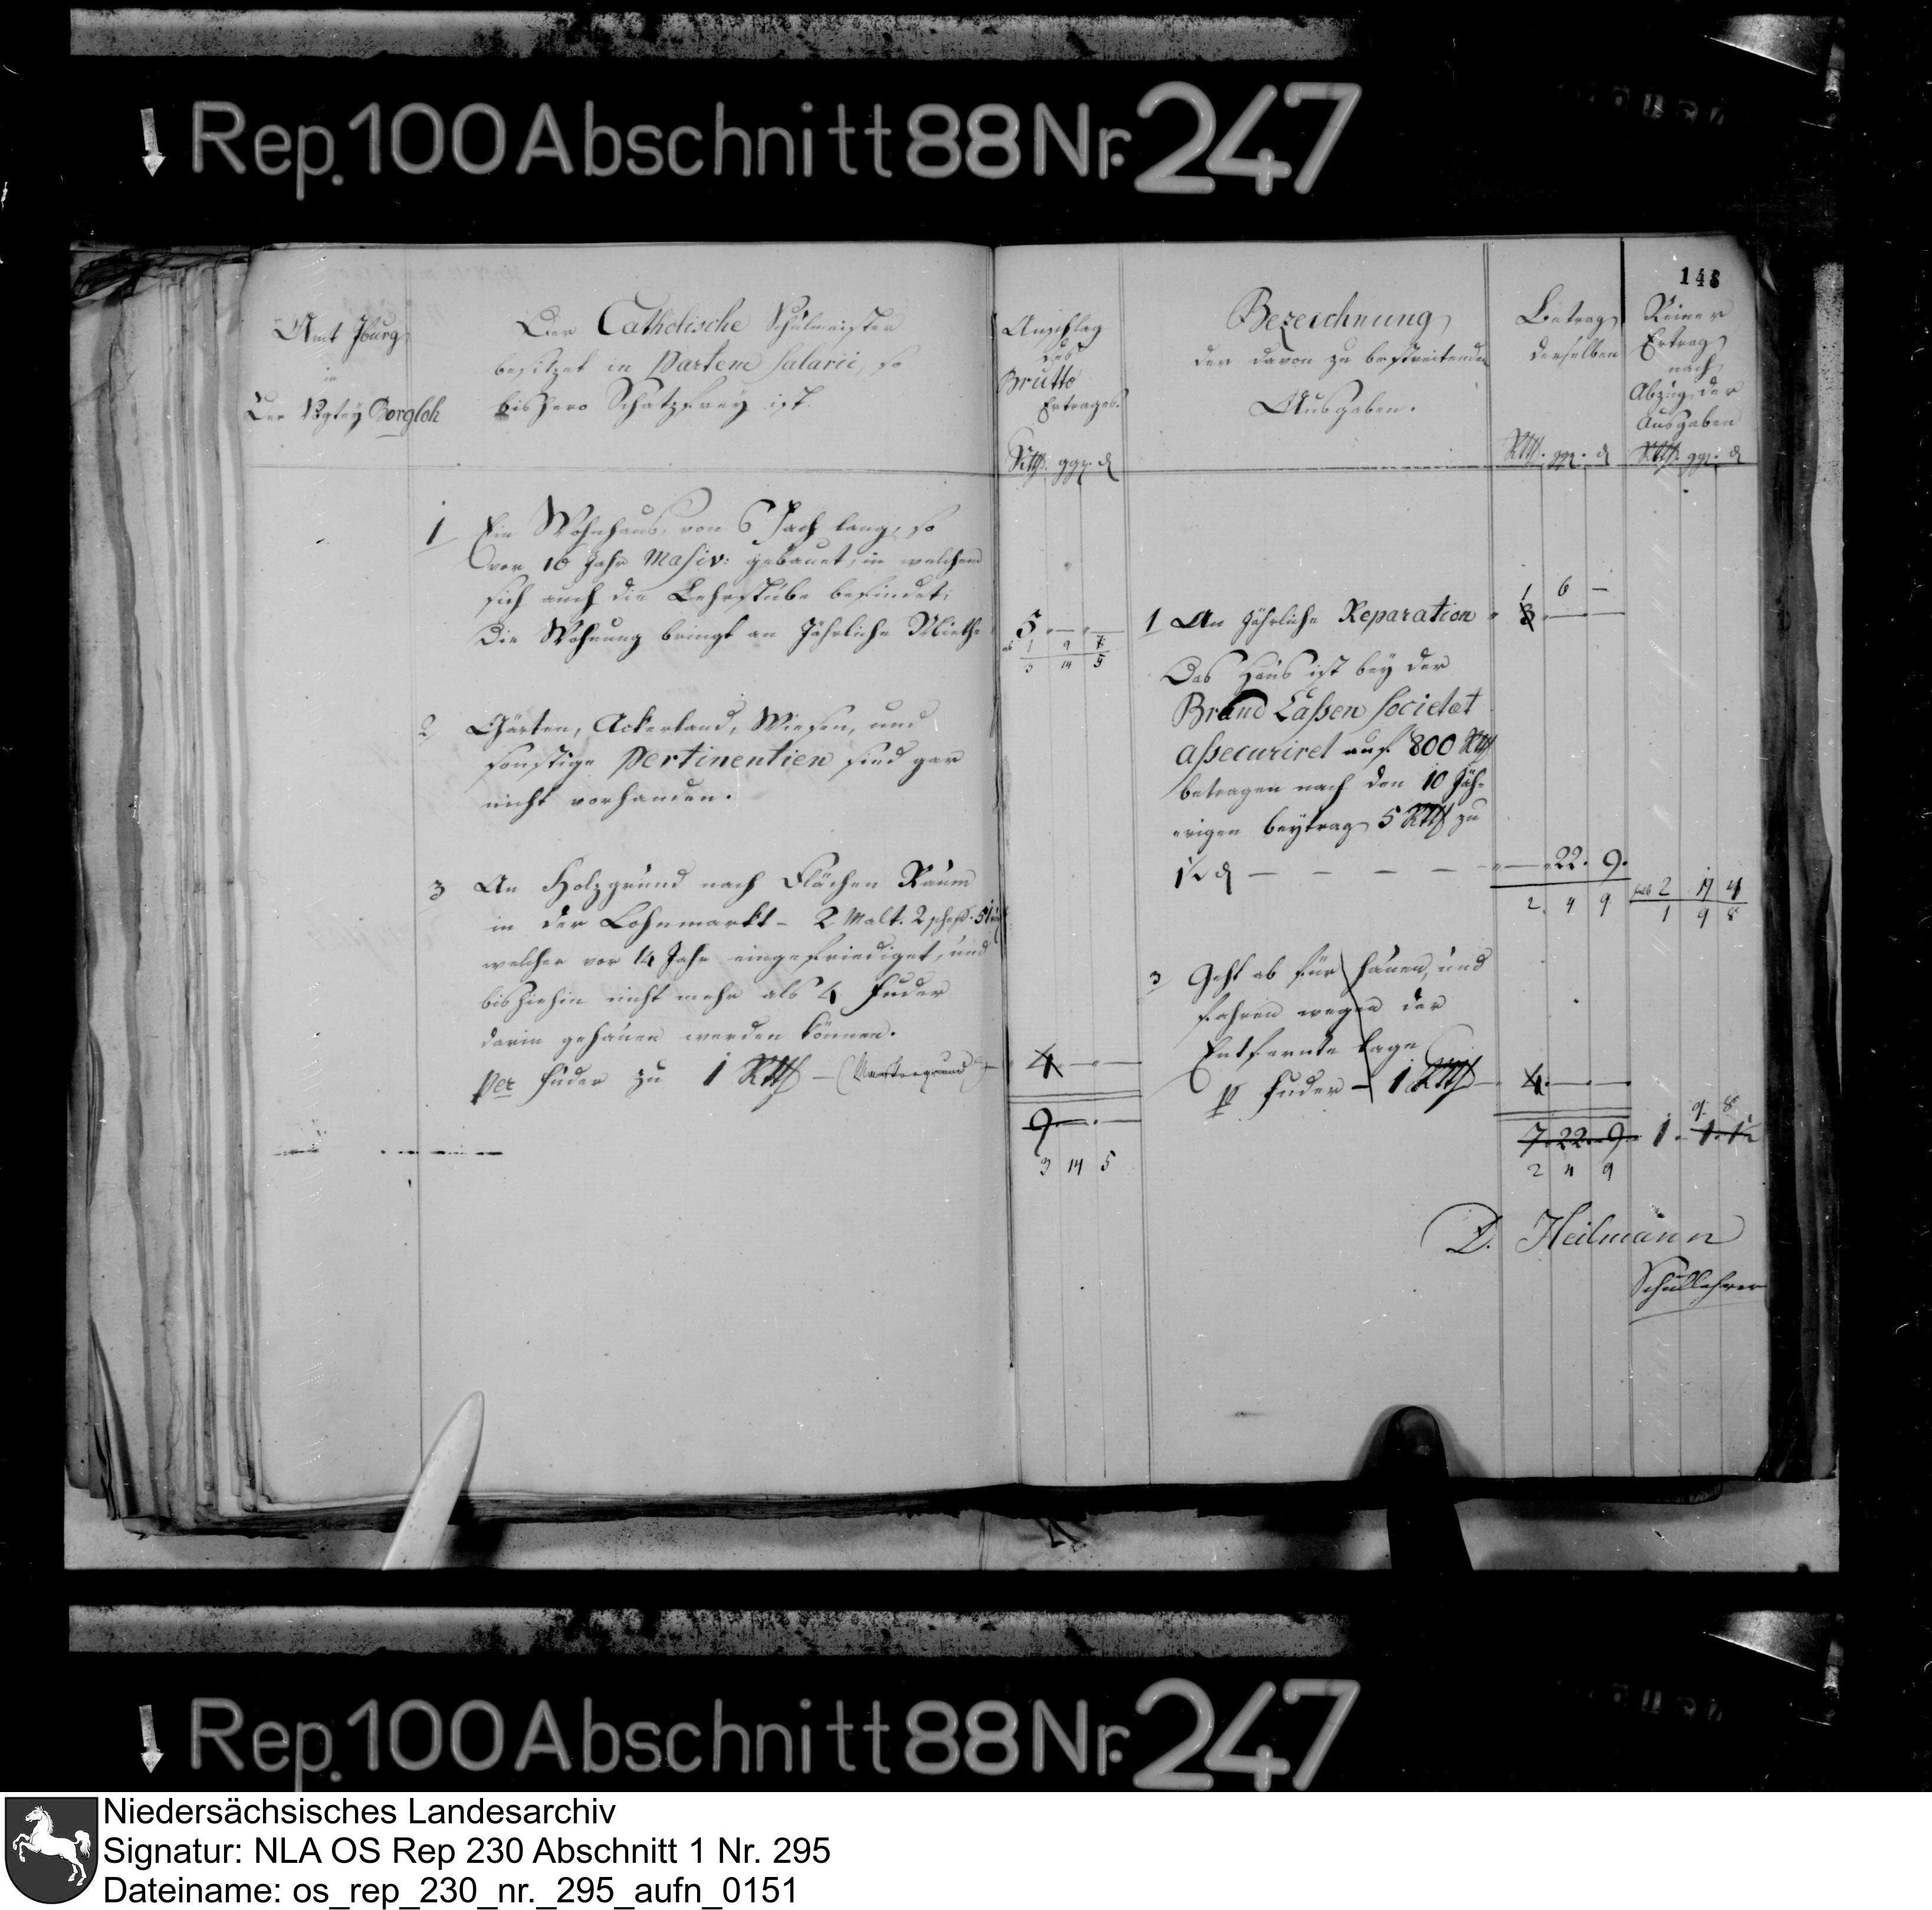 Rep. 100 Abschnitt 88 Nr. 247
148
Amt Iburg
in
Der Vogtey Borgloh
Der Catholische Schulmeister
besitzet in Partem Salarii, so
bishero Schatzfrey ist.
Anschlag
des
Brutto
Ertrages.
Rtlr. ggr. d
Bezeichnung
der davon zu bestreitenden
Ausgaben.
Betrag
derselben
Rtlr. ggr. d
Reiner
Ertrag
nach
Abzug der
Ausgaben
Rtlr. ggr. d
1 Ein Wohnhaus, von 6 Fach lang, so
vor 16 Jahr Masiv: gebauet, in welchem
sich auch die Lehrstube befindet,
die Wohnung bringt an Jährliche Miethe
5 — —
ab 1 9 7
3 14 5
2 Gärten, Ackerland, Wiesen, und
sonstige Pertinentien sind gar
nicht vorhanden.
3 An Holzgrund nach Flächen Raum
in der Lohnmarkt - 2 Malt. 2 schefs. 5
welcher vor 14 Jahr eingefriediget, und
bishiehin nicht mehr als 4 Fuder
darin gehauen werden können.
Per Fuder zu 1 Rtlr —
4 — —
9 — —
3 14 5
1 An Jährliche Reparation
1 6 —
3 — —
Das Haus ist bey der
Brand Cassen Societat
assecuriret auf 800 Rtlr
betragen nach den 10 Jäh-
rigen beytrag 5 Rtlr zu
1½ d — — — — —
— 22. 9.
2. 4 9
2 14 4
1 9 8
3 Geht ab für hauen, und
fahren wegen der
Entfernte Lage
p Fuder — 1 Rtlr —
4 — —
7. 22. 9.
2 4 9
9 8
1. 1. 1½
D. Heilmann
Schullehrer
Rep. 100 Abschnitt 88 Nr. 247
Niedersächsisches Landesarchiv
Signatur: NLA OS Rep 230 Abschnitt 1 Nr. 295
Dateiname: os_rep_230_nr._295_aufn_0151